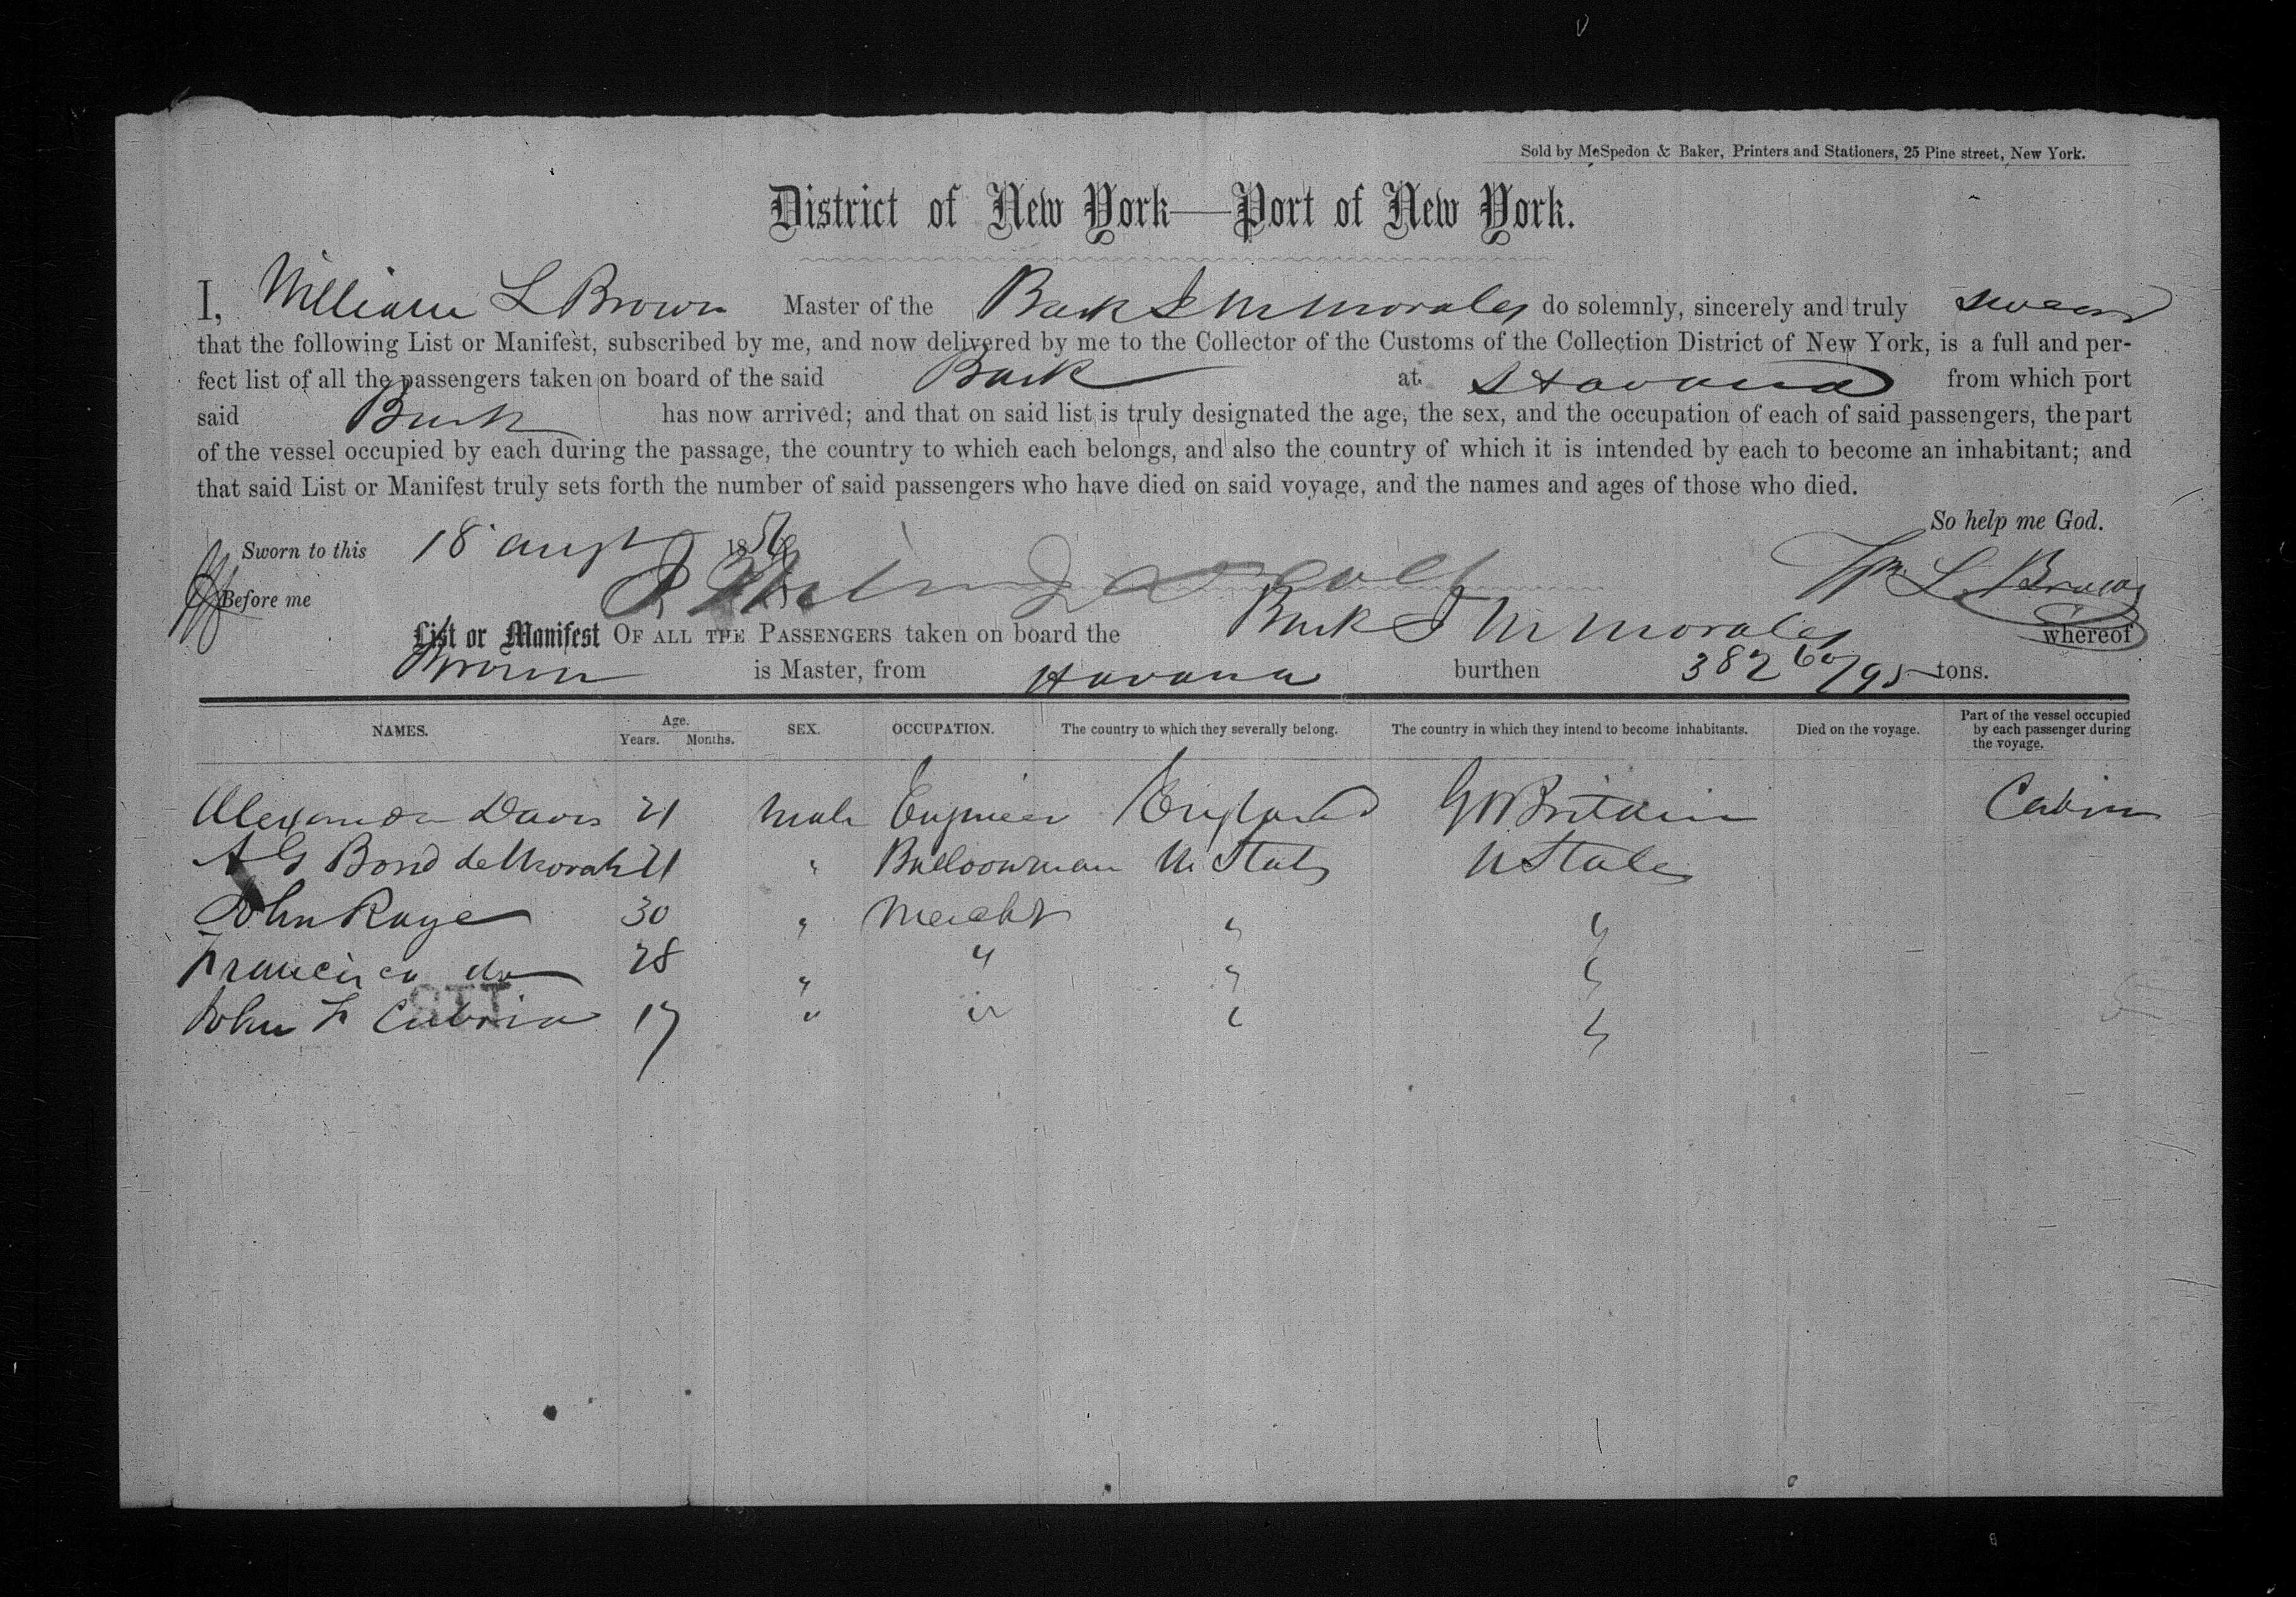 Sold by McSpedon & Baker, Printers and Stationers, 25 Pine street, New York.
District of New York—Port of New York.
I, William L Brown Master of the Bark J M Morales do solemnly, sincerely and truly swear
that the following List or Manifest, subscribed by me, and now delivered by me to the Collector of the Customs of the Collection District of New York, is a full and per-
fect list of all the passengers taken on board of the said Bark at Havana from which port
said Bark has now arrived; and that on said list is truly designated the age, the sex, and the occupation of each of said passengers, the part
of the vessel occupied by each during the passage, the country to which each belongs, and also the country of which it is intended by each to become an inhabitant; and
that said List or Manifest truly sets forth the number of said passengers who have died on said voyage, and the names and ages of those who died.
So help me God.
Sworn to this 18 augt 1856
Wm L. Brown
Before me
List or Manifest OF ALL THE PASSENGERS taken on board the Bark J M Morales whereof
Brown is Master, from Havana burthen 382 60/95 tons.
NAMES. Age. Years. Months. SEX. OCCUPATION. The country to which they severally belong. The country in which they intend to become inhabitants. Died on the voyage. Part of the vessel occupied by each passenger during the voyage.
Alexander Davis 21 Male Engineer England G Britain Cabin
A G Bond 21 " Balloonman U States U States
John Raye 30 " Mercht " "
Francisco do 28 " " " "
John F Cubria 17 " " " "
STT